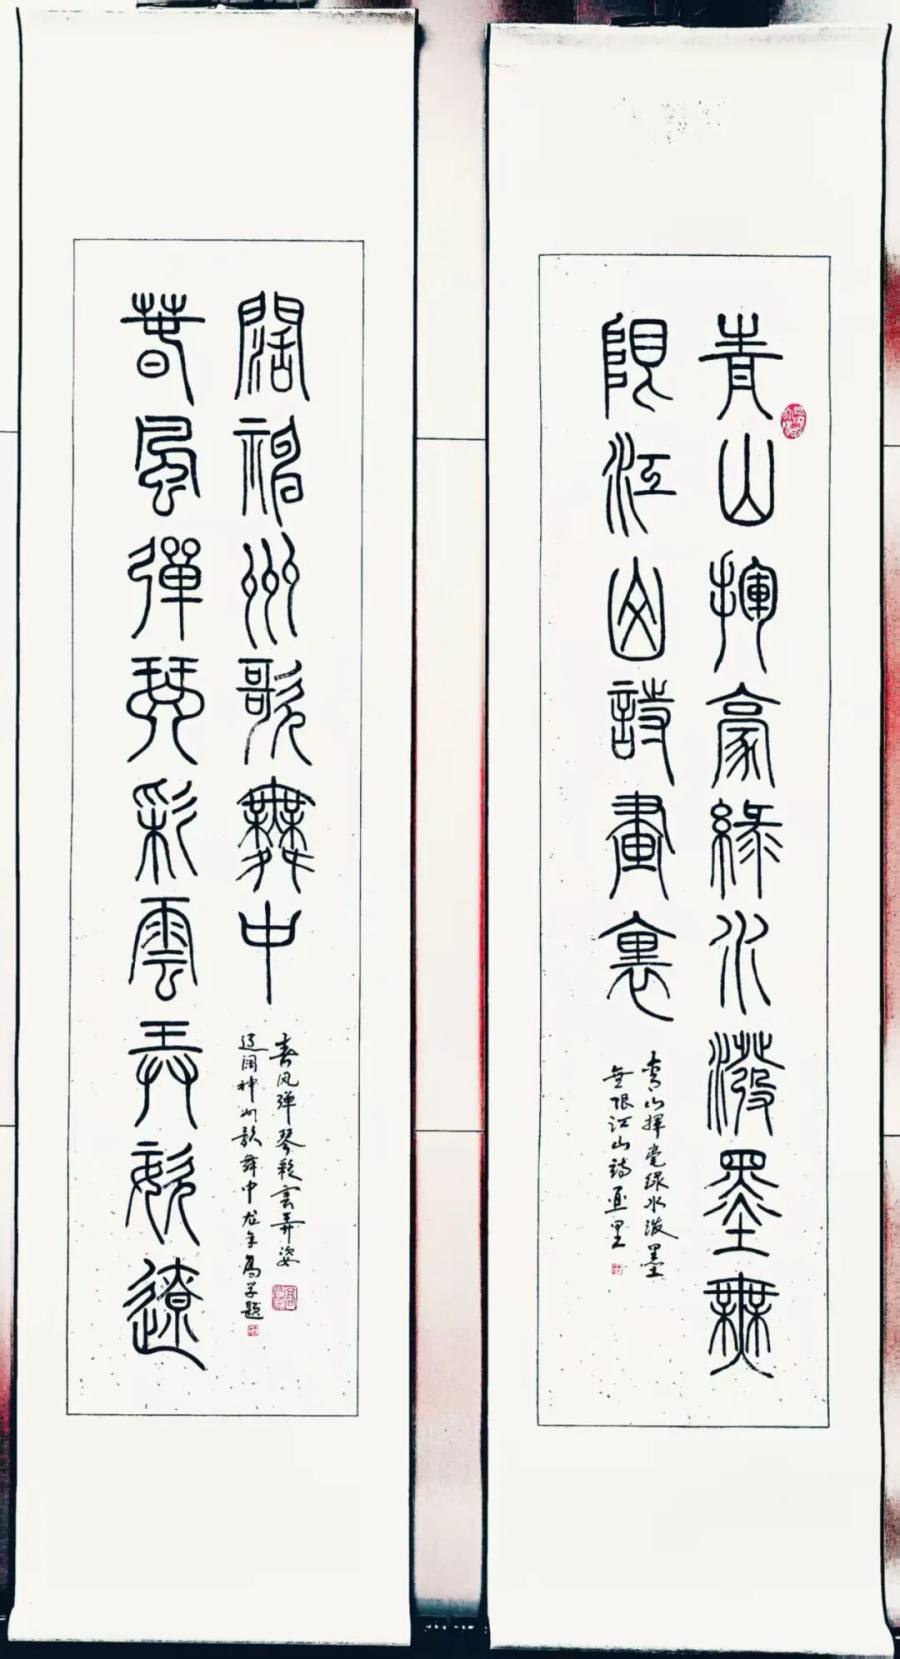 青山揮豪綠水潑墨無
限江山詩畫裏
青山揮毫绿水潑墨
無限江山詩画里
春風彈琴彩雲弄姿遼
闊神州歌舞中
春风弹琴彩雲弄姿
辽阔神州歌舞中龙年题